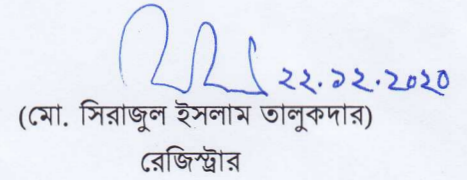 ২২.১২.২০২০
(মো. সিরাজুল ইসলাম তালুকদার)
রেজিস্ট্রার